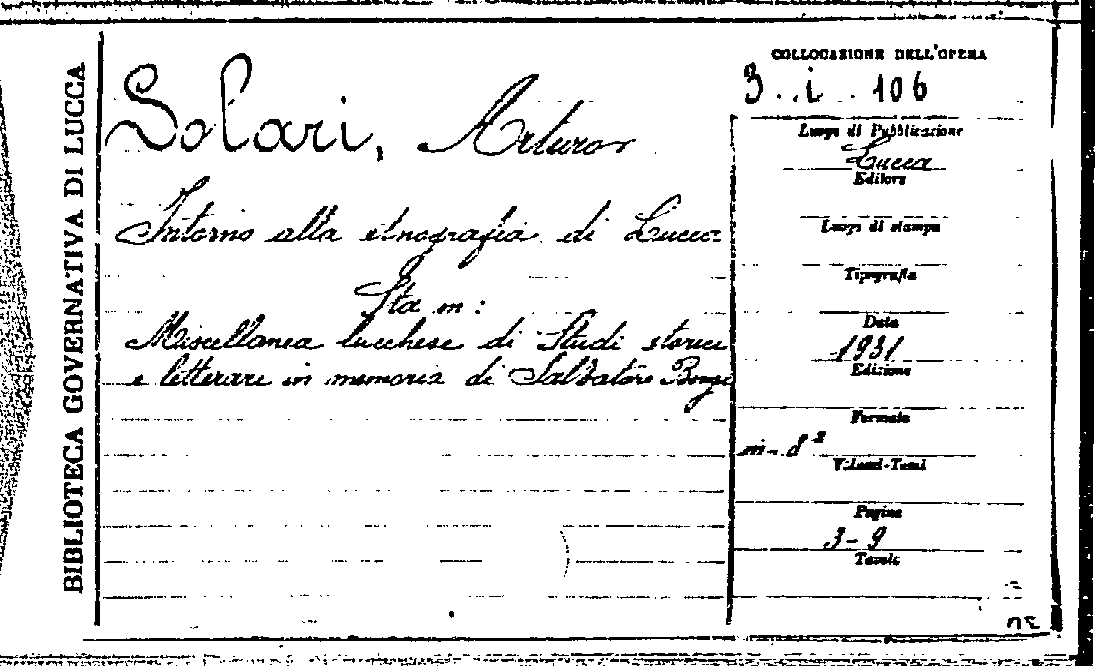 BIBLIOTECA GOVERNATIVA DI LUCCA
Solari, Arturo
Intorno alla etnografia di Lucca
Sta in:
Miscellanea lucchese di Studi storici
e letterari in memoria di Salvatore Bongi
COLLOCAZIONE DELL'OPERA
3. i. 106
Luogo di Pubblicazione
Lucca
Editore
Luogo di stampa
Tipografia
Data
1931
Edizione
Formato
in-8°
Volumi-Tomi
Pagine
3-9
Tavole